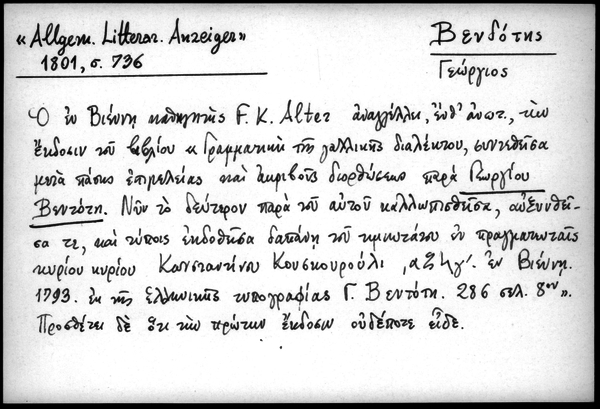 «Allgem. Litterar. Anzeiger»
1801, σ. 736
Βενδότης
Γεώργιος
Ὁ ἐν Βιέννῃ καθηγητὴς F. K. Alter ἀναγγέλλει, ἔνθ' ἀνωτ., τὴν
ἔκδοσιν τοῦ βιβλίου « Γραμματικὴ τῆς γαλλικῆς διαλέκτου, συντεθεῖσα
μετὰ πάσης ἐπιμελείας καὶ ἀκριβοῦς διορθώσεως παρὰ Γεωργίου
Βεντότη. Νῦν τὸ δεύτερον παρὰ τοῦ αὐτοῦ καλλωπισθεῖσα, αὐξυνθεῖ-
σα τε, καὶ τύποις ἐκδοθεῖσα δαπάνῃ τοῦ τιμιωτάτου ἐν πραγματευταῖς
κυρίου κυρίου Κωνσταντίνου Κουσκουρούλι, αϡϟγ'. ἐν Βιέννῃ.
1793. ἐκ τῆς ἑλληνικῆς τυπογραφίας Γ. Βεντότη. 286 σελ. 8ον».
Προσθέτει δὲ ὅτι τὴν πρώτην ἔκδοσιν οὐδέποτε εἶδε.